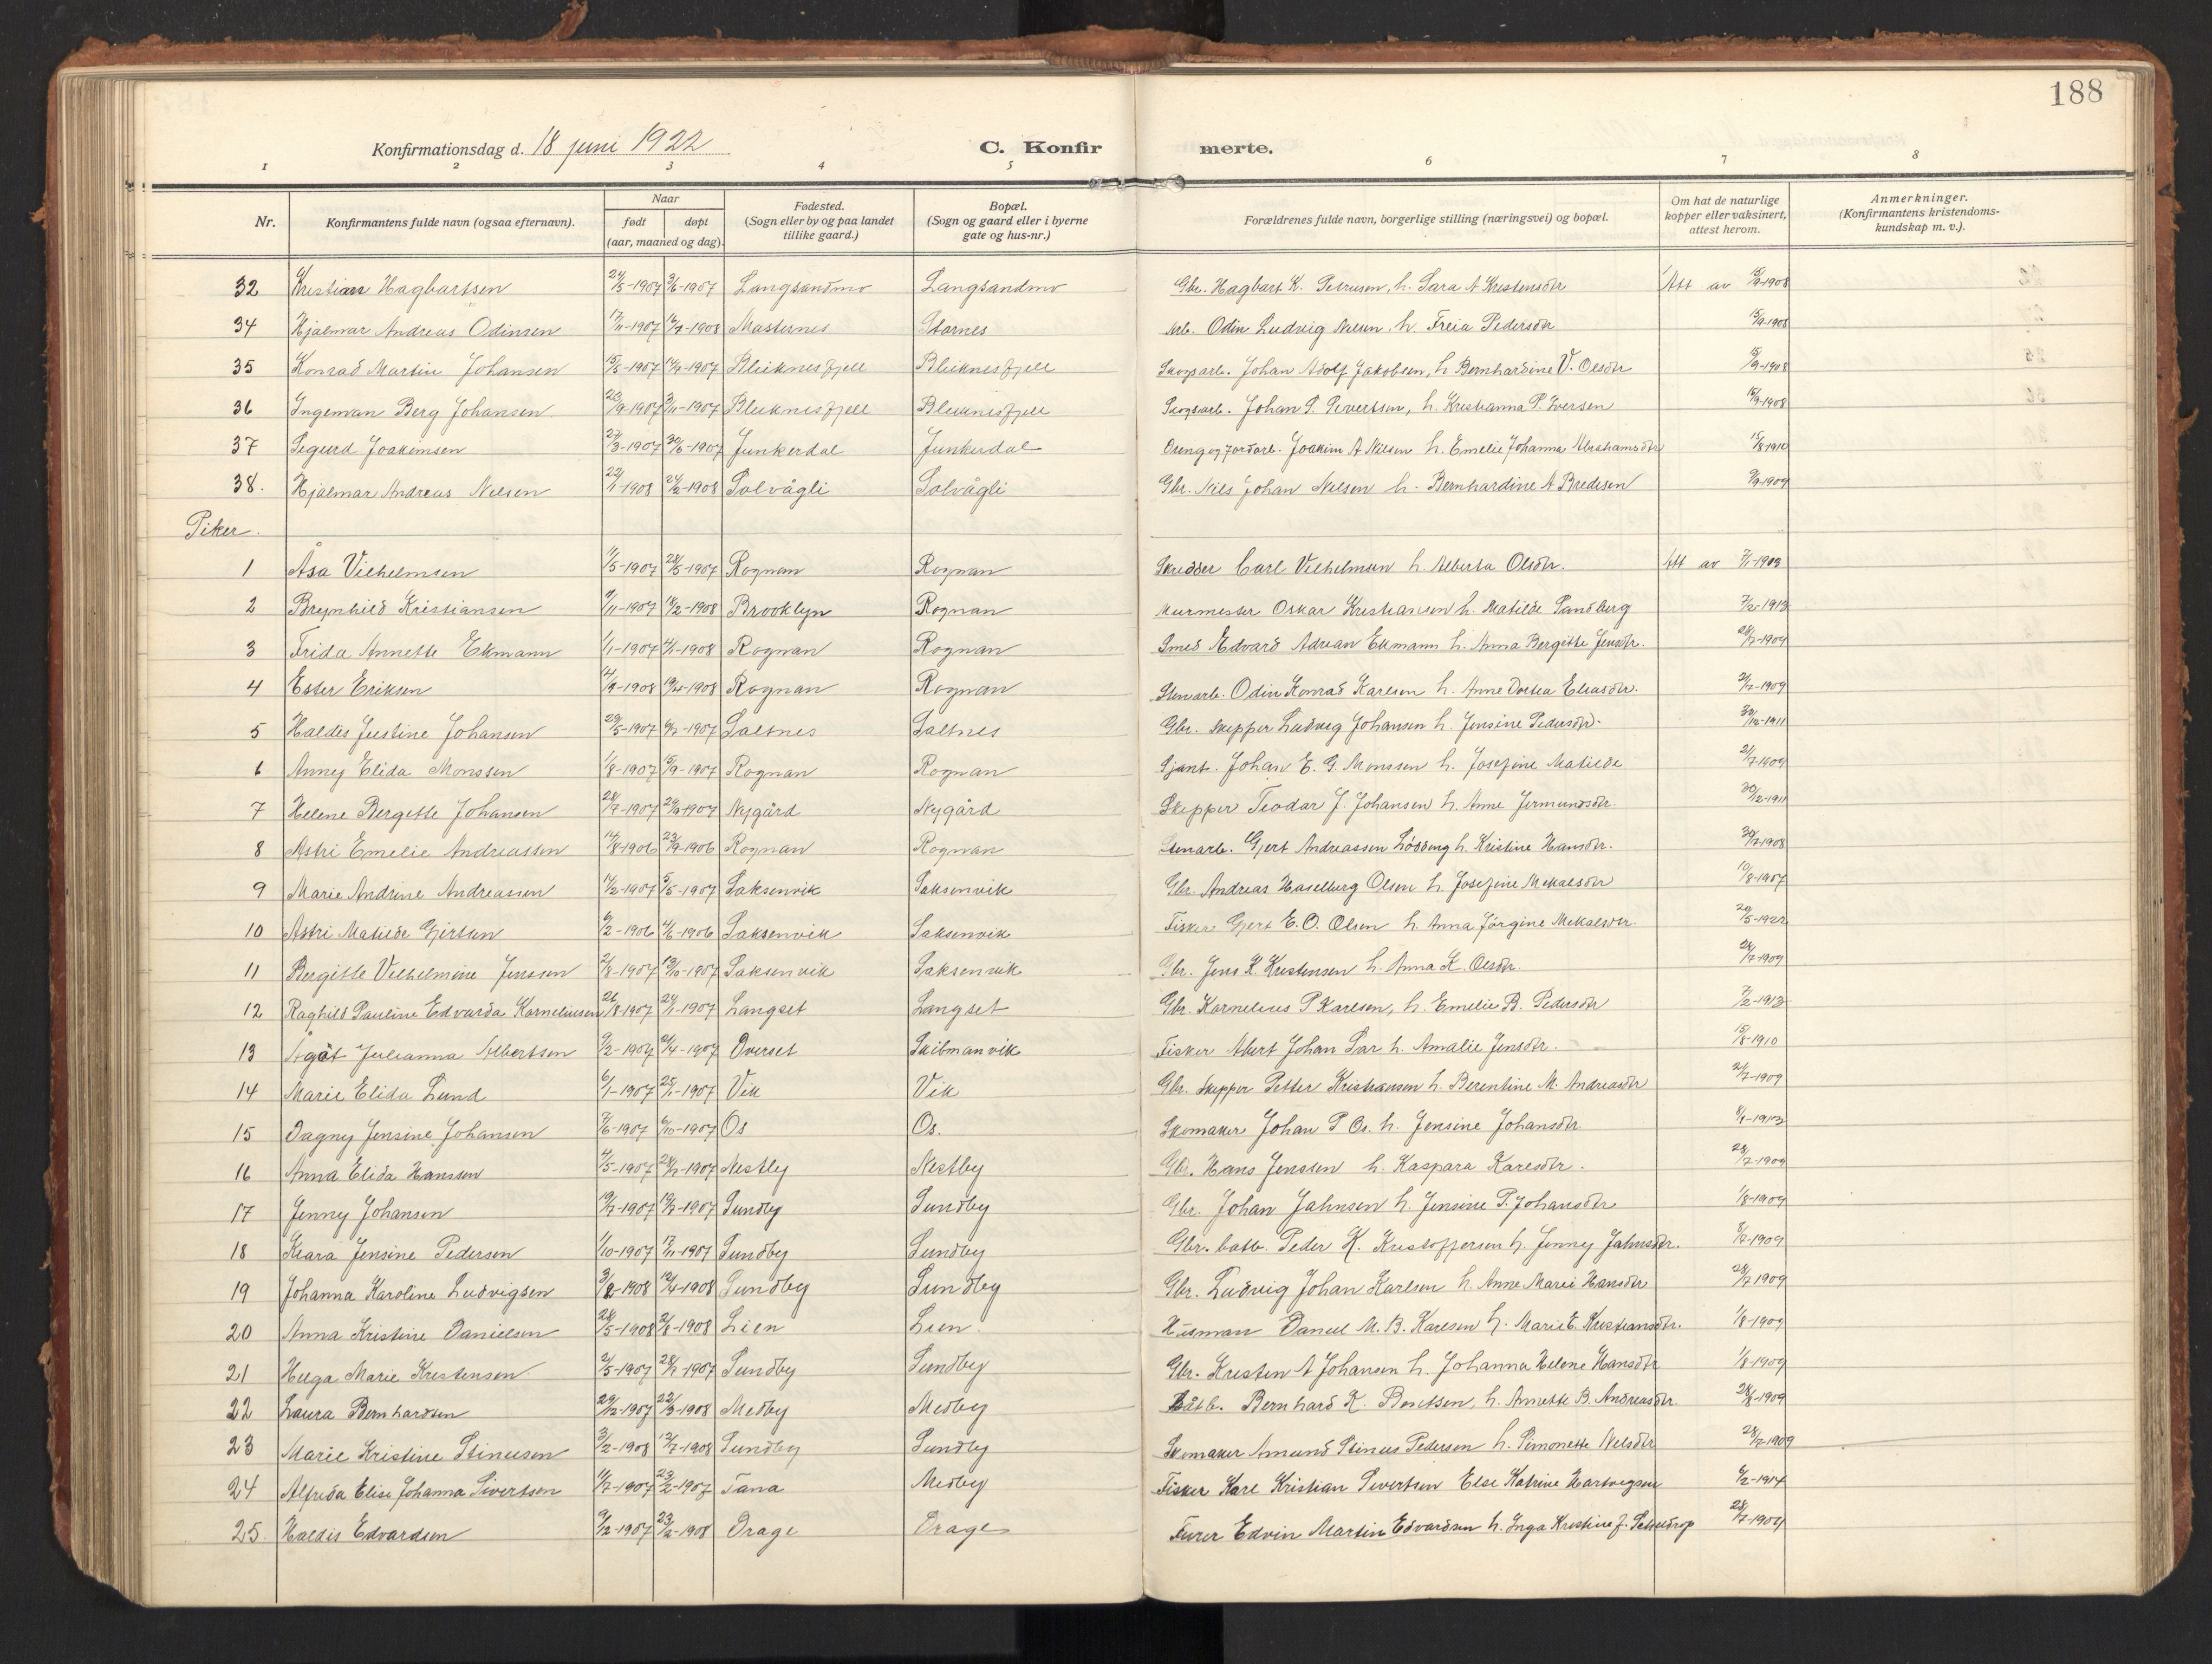 188
Konfirmationsdag d. 18 juni 1922 C. Konfirmerte.
1 2 3 4 5 6 7 8
Nr. Konfirmantens fulde navn (ogsaa efternavn). Naar født døpt (aar, maaned og dag). Fødested. (Sogn eller by og paa landet tillike gaard.) Bopæl. (Sogn og gaard eller i byerne gate og hus-nr.) Forældrenes fulde navn, borgerlige stilling (næringsvei) og bopæl. Om hat de naturlige kopper eller vaksinert, attest herom. Anmerkninger. (Konfirmantens kristendoms-kundskap m. v.).
32 Kristian Hagbartsen 24/5-1907 9/6-1907 Langsandmo Langsandmo Gbr. Hagbart K. Petrusen, h. Sara A Kristensdtr Att av 15/9-1908
34 Hjalmar Andreas Odinsen 17/11-1907 12/7-1908 Masternes Stornes Arb. Odin Ludvig Nilsen, h. Freia Pedersdtr 15/9-1908
35 Konrad Martin Johansen 15/5-1907 14/7-1907 Bleiknesfjell Bleiknesfjell Skogsarb. Johan Adolf Jakobsen, h Bernhardine V. Olsdtr 15/9-1908
36 Ingeman Berg Johansen 20/9-1907 3/11-1907 Bleiknesfjell Bleiknesfjell Skogsarb. Johan S. Sivertsen, h. Kristianna P. Iversen 15/9-1908
37 Sigurd Joakimsen 27/3-1907 30/6-1907 Junkerdal Junkerdal Joakim A Nilsen h. Emelie Johanna Abrahamsdtr 15/8-1910
38. Hjalmar Andreas Nilsen 22/1-1908 24/2-1908 Solvågli Solvågli Gbr. Nils Johan Nilsen h. Bernhardine A Bredesen 9/9-1909
Piker.
1 Åsa Vilhelmsen 11/5-1907 28/5-1907 Rognan Rognan Skredder Carl Vilhelmsen h. Alberta Olsdtr. Att av 7/1-1909
2 Brynhild Kristiansen 9/11-1907 18/2-1908 Brooklyn Rognan Murmester Oskar Kristiansen h. Matilde Sandberg 7/2-1913
3 Frida Annette Ekmann 1/11-1907 4/1-1908 Rognan Rognan Smed Edvard Adrian Ekmann h. Anna Bergitte Jensdtr. 28/7-1909
4 Ester Eriksen 19/4-1908 Rognan Rognan Stenarb. Odin Konrad Karlsen h. Anne Dortea Eliasdtr. 21/7-1909
5 Haldis Justine Johansen 29/5-1907 6/7-1907 Saltnes Saltnes Gbr. Skipper Ludvig Johansen h. Jensine Pedersdtr. 30/12-1911
6 Anney Elida Monssen 1/8-1907 5/9-1907 Rognan Rognan Sjant. Johan E. G. Monssen h. Josefine Matilde 21/7-1909
7 Helene Bergitte Johansen 28/7-1907 29/9-1907 Nygård Nygård Skipper Teodor J. Johansen h. Anne Jermundsdtr. 30/12-1911
8 Astri Emelie Andreassen 14/8-1906 23/9-1906 Rognan Rognan Stenarb. Gjert Andreassen Lødding h. Kristine Hansdtr. 30/7-1908
9 Marie Andrine Andreassen 17/2-1907 5/5-1907 Saksenvik Saksenvik Gbr. Andreas Haselberg Olsen h. Josefine Mikalsdtr 10/8-1907
10 Astri Matilde Gjertsen 9/2-1906 4/6-1906 Saksenvik Saksenvik Fisker Gjert E. O. Olsen h. Anna Jørgine Mikalsdtr. 20/5-1922
11 Bergitte Vilhelmine Jenssen 2/8-1907 13/10-1907 Saksenvik Saksenvik Gbr. Jens K. Kristensen h. Anna K. Olsdtr. 28/7-1909
12 Raghild Pauline Edvarda Korneliusen 26/8-1907 24/11-1907 Langset Langset Gbr. Kornelius P Karlsen, h. Emelie B. Pedersdtr 7/2-1913
13 Ågot Julianna Albertsen 9/2-1907 21/4-1907 Øverset Skibmanvik Fisker Albert Johan Lar h. Amalie Jensdtr. 15/8-1910
14 Marie Elida Lund 6/1-1907 25/1-1907 Vik Vik Gbr. Skipper Petter Kristiansen h. Berentine M. Andreasdtr 21/7-1909
15 Dagny Jensine Johansen 2/6-1907 6/10-1907 Os Os. Skomaker Johan P Os. h. Jensine Johansdtr 8/1-1913
16 Anna Elida Hanssen 4/5-1907 28/7-1907 Nestby Nestby Gbr. Hans Jenssen h. Kaspara Karlsdtr. 28/7-1909
17 Jenny Johansen 19/7-1907 Sundby Sundby Gbr. Johan Jahnsen h. Jensine P. Johansdtr 1/8-1909
18 Klara Jensine Pedersen 1/10-1907 17/11-1907 Sundby Sundby Gbr. båtb. Peder K. Kristoffersen h. Jenny Jahnsdtr. 8/7-1909
19 Johanna Karoline Ludvigsen 3/2-1908 12/4-1908 Sundby Sundby Gbr. Ludvig Johan Karlsen h. Anne Marie Hansdtr 28/7 1909
20 Anna Kristine Danielsen 28/5-1908 2/8-1908 Lien Lien. Husman Daniel M. B. Karlsen h. Marie E. Kristiansdtr. 1/8-1909
21 Helga Marie Kristensen 2/5-1907 28/7-1907 Sundby Sundby Gbr. Kristen A Johansen h. Johanna Helene Hansdtr 1/8-1909
22 Laura Bernhardsen 29/12-1907 22/3-1908 Medby Medby Båtb. Bernhard K. Bentsen, h. Annette B. Andreasdtr. 28/8-1909
23 Marie Kristine Stinusen 3/2-1908 12/7-1908 Sundby Sundby Skomaker Amund Stinus Pedersen h. Simonette Nilsdtr 28/7 1909
24 Alfrida Elise Johanna Sivertsen 11/7-1907 Tana Medby Fisker Karl Kristian Sivertsen Else Katrine Hartvigsen 6/2-1914
25. Haldis Edvardsen 9/12-1907 23/2-1908 Drage Drage Furer Edvin Martin Edvardsen h. Inga Kristine J. Scheldrop 28/7-1909